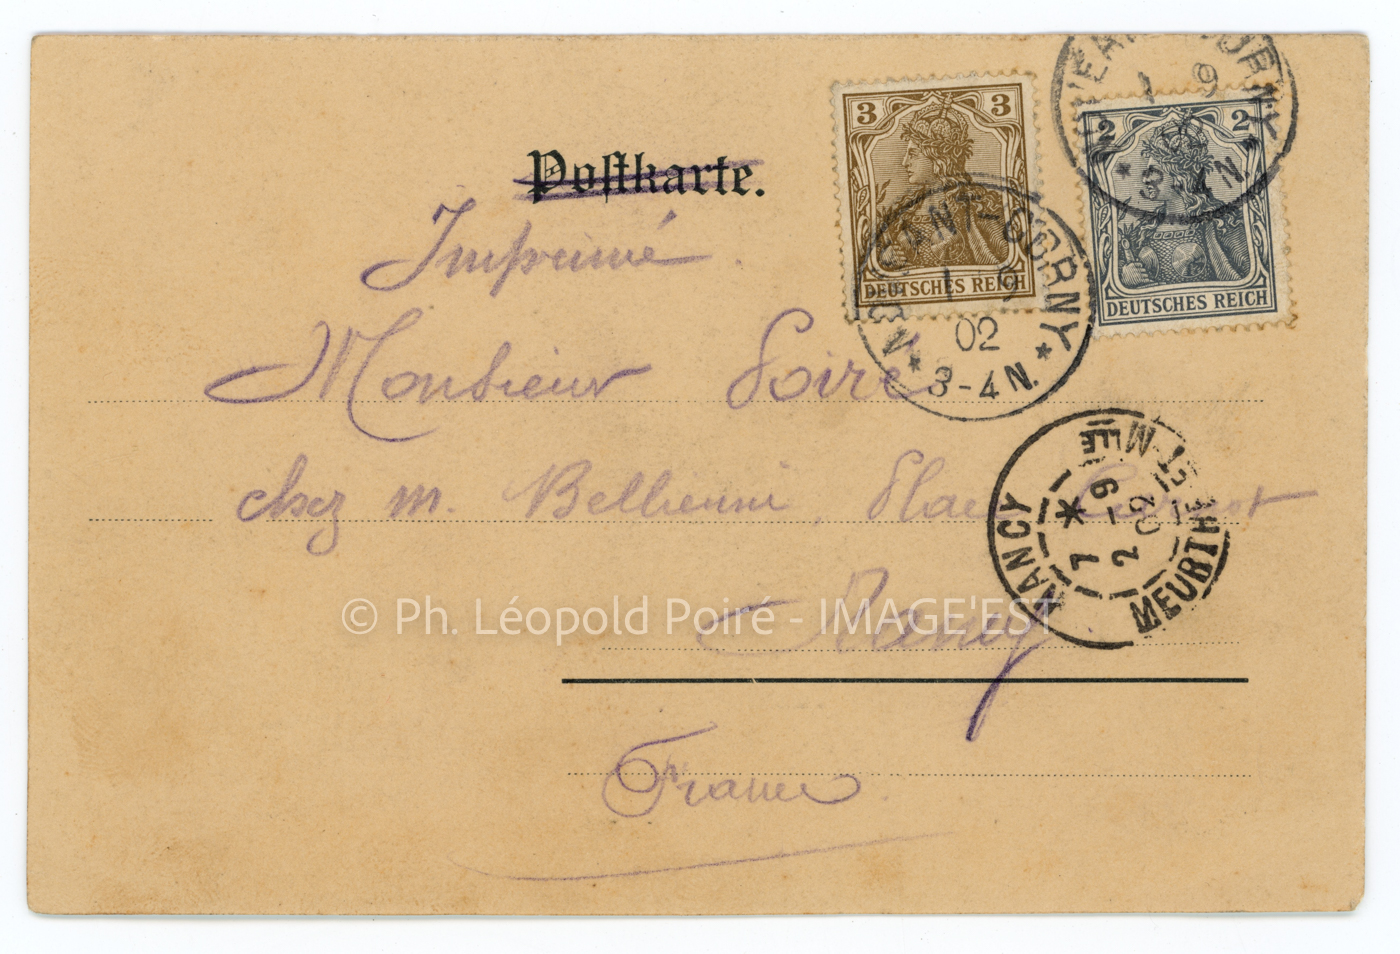 Postkarte.
Imprimé
Monsieur Poiré
chez M. Bellieni, Place Carnot
Nancy
France
3 3
DEUTSCHES REICH
2 2
DEUTSCHES REICH
NOVÉANT-CORNY
1 9
02
* 3-4N. *
NOVÉANT-CORNY
1 9
02
* 3-4N.
NANCY
MEURTHE-ET-MLLE
7 *
2 - 9
02
© Ph. Léopold Poiré - IMAGE'EST